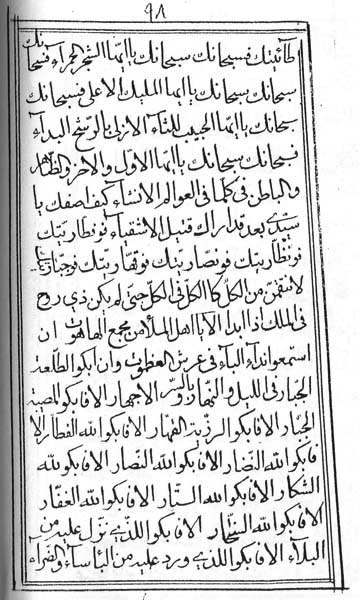 ٩٨
طآئيتك فسبحانك سبحانك ياايها الشجر الحمرآء فسبحانك
سبحانك سبحانك ياايها المليك الاعلى فسبحانك
سبحانك ياايها الحبيب الازلى البدآء
فسبحانك سبحانك ياايها الاول والاخر والظاهر
والباطن فى كلما فى العوالم الانشاء كيف اصفك يا
سيدى بعد قتيل الاشقياء فونظاريتك
فونظاريتك فونصاريتك فوقهاريتك فوجباريتك
لانتقمن من الكل كا الكل فى الكل حتى لم يكن ذى روح
فى الملك اذا ابدا الا يا اهل الملأ من مجمع الهاهوت ان
استمعوا ندآء البآء فى عرش العظموت وان ابكوا لطلعة
الجبار فى الليل والنهار بالسر والاجهار الا فابكوا لمصيبة
الجبار الا فابكوا لرزية القهار الا فابكوا لله الفطار الا
فابكوا لله النضار الا فابكوا لله النصار الا فابكوا لله
الشكار الا فابكوا لله الستار الا فابكوا لله الغفار
الا فابكوا لله الا فابكوا للذى نزل عليه من
البلآء الا فابكوا للذى ورد عليه من الباسآء والضرآء